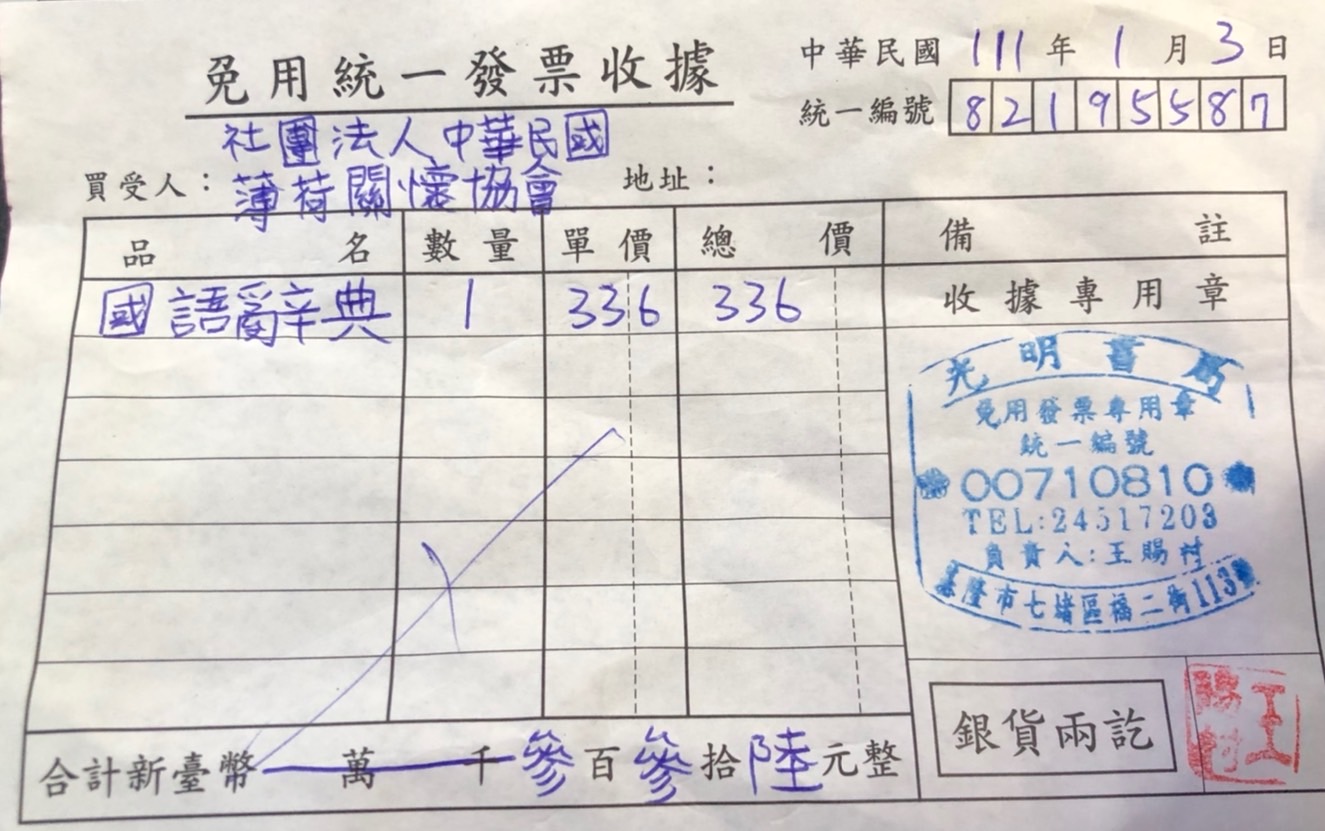 免用統一發票收據
中華民國 111 年 1 月 3 日
統一編號 82195587
社團法人中華民國
買受人：薄荷關懷協會 地址：
品名 數量 單價 總價 備註
國語辭典 1 336 336 收據專用章
光明書局
免用發票專用章
統一編號
00710810
TEL:24517203
負責人:王賜村
基隆市七堵區福二街113號
合計新臺幣 萬 千參百參拾陸元整
銀貨兩訖
王賜村